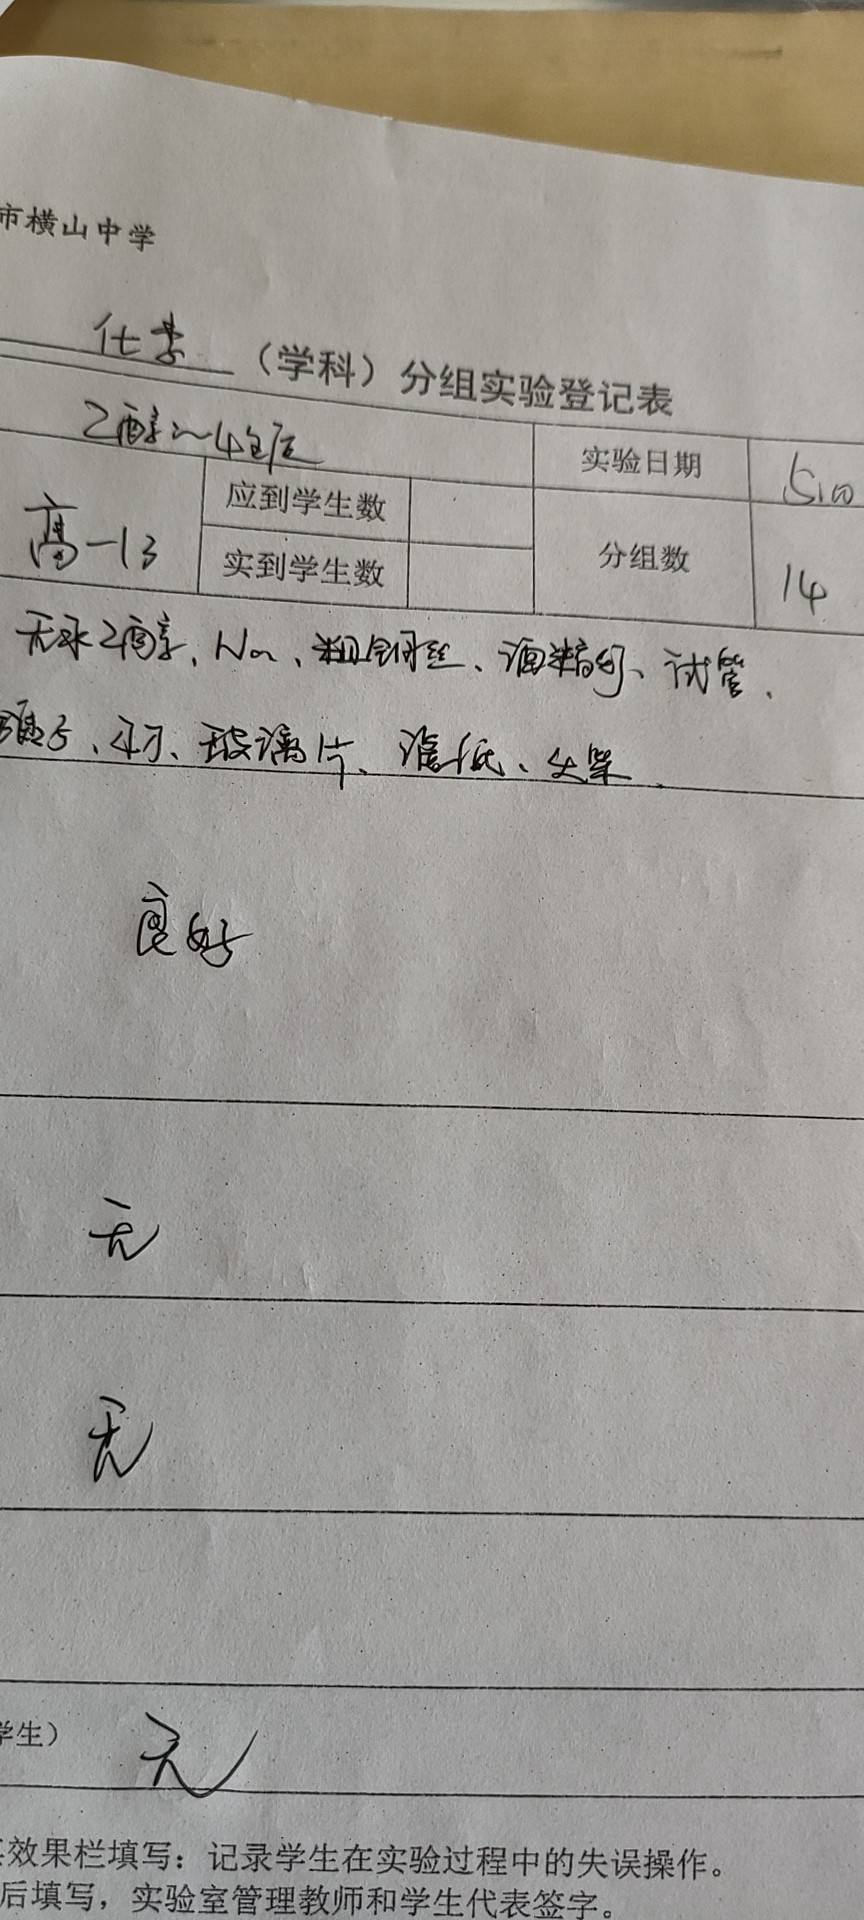 市横山中学
化学（学科）分组实验登记表
乙醇 实验日期 5.10
高一13 应到学生数 分组数 14
实到学生数
无水乙醇、Na、粗铜丝、酒精灯、试管、
镊子、小刀、玻璃片、滤纸、火柴
良好
无
无
学生） 无
效果栏填写：记录学生在实验过程中的失误操作。
后填写，实验室管理教师和学生代表签字。